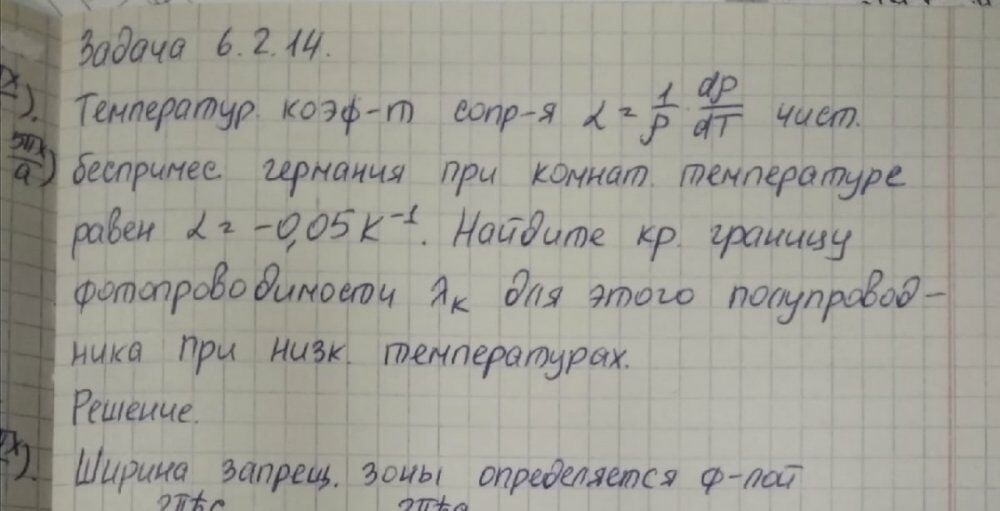 Задача 6.2.14.
Температур. коэф-т сопр-я α = 1/ρ · dρ/dT чист.
беспримес. германия при комнат. температуре
равен α = -0,05 K⁻¹. Найдите кр. границу
фотопроводимости λк для этого полупровод-
ника при низк. температурах.
Решение.
Ширина запрещ. зоны определяется ф-лой